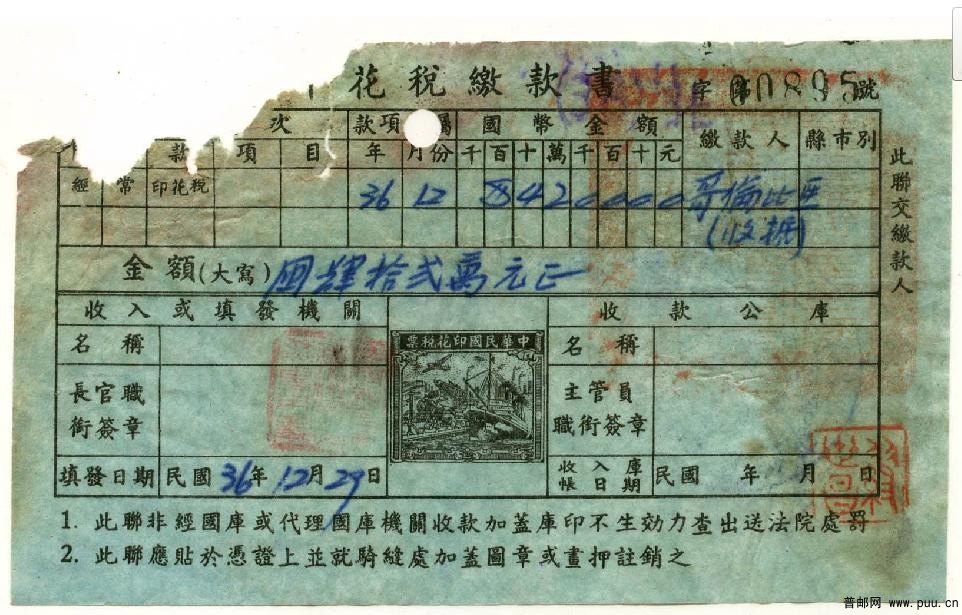 花稅繳款書 字第00895號
次 款項 屬 國幣金額 繳款人 縣市別
款 項 目 年 月份 千百十萬千百十元
經常 印花稅 36 12 8420000 哥倫比亞
(收據)
金額(大寫) 肆拾弍萬元正
收入或填發機關 收款公庫
中華民國印花稅票
名稱 名稱
長官職銜簽章 主管員職銜簽章
填發日期 民國36年12月29日 收入庫帳日期 民國 年 月 日
1. 此聯非經國庫或代理國庫機關收款加蓋庫印不生効力查出送法院處罰
2. 此聯應貼於憑證上並就騎縫處加蓋圖章或畫押註銷之
此聯交繳款人
普邮网 www.puu.cn